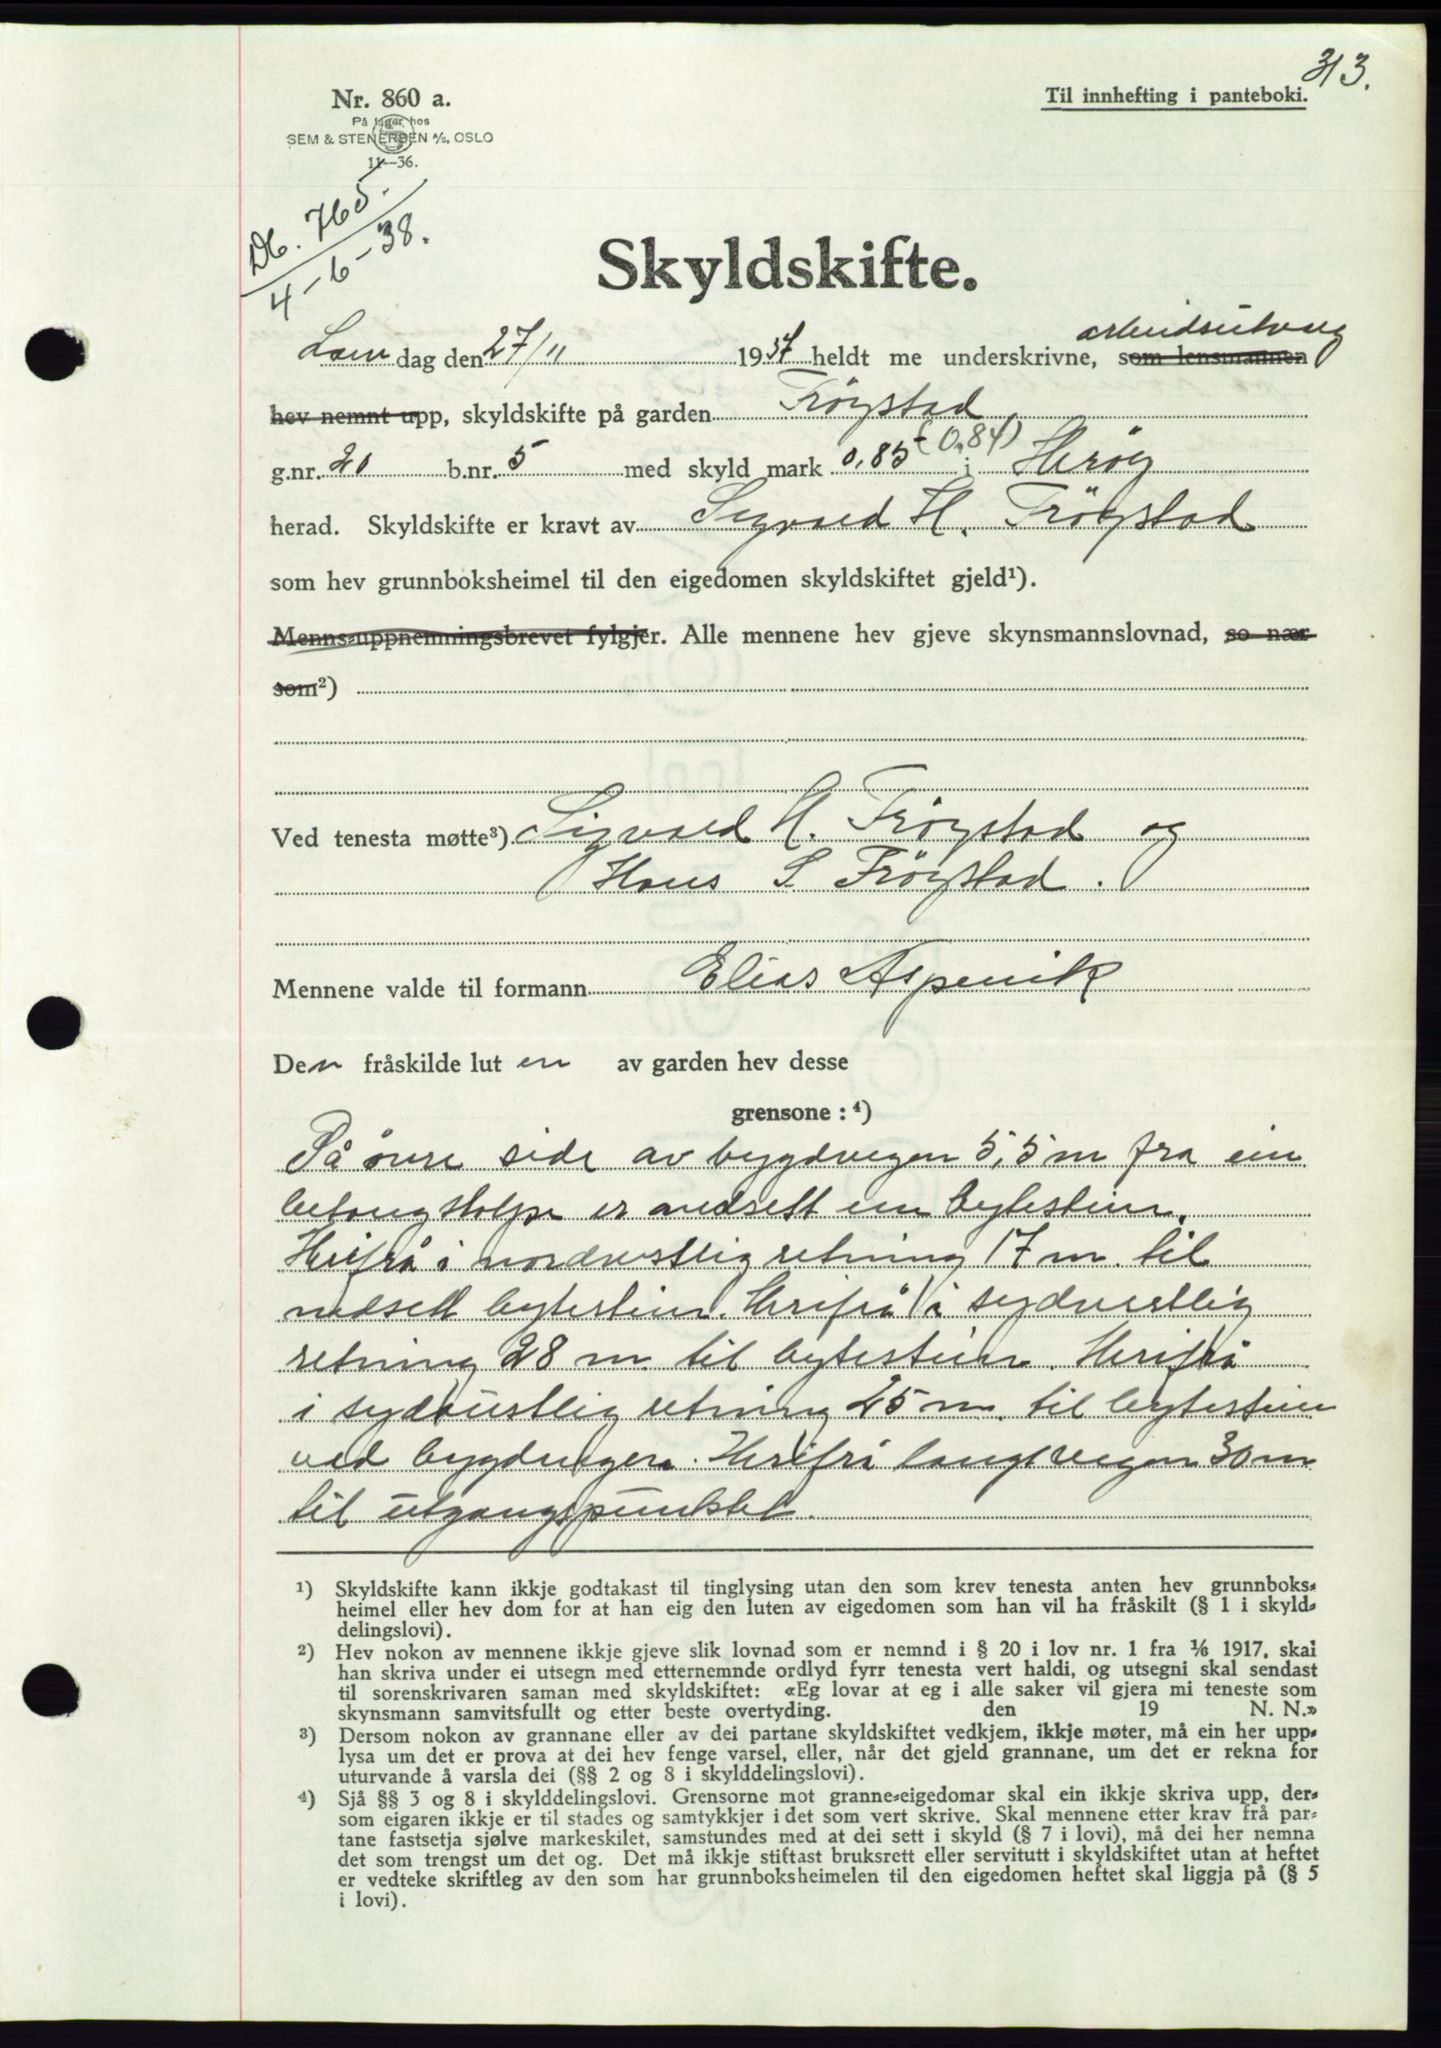 313.
Nr. 860 a.
Til innhefting i panteboki.
På lager hos
SEM & STENERSEN A/S, OSLO
11—36.
Db. 765.
4-6-38.
Skyldskifte.
arbeidsutvalg
Laur dag den 27/11 1937 heldt me underskrivne, som lensmannen
hev nemnt upp, skyldskifte på garden Frøystad
g.nr. 20 b.nr. 5 med skyld mark 0,85 (0,84) i Herøy
herad. Skyldskifte er kravt av Sigvald H. Frøystad
som hev grunnboksheimel til den eigedomen skyldskiftet gjeld¹).
Menns-uppnemningsbrevet fylgjer. Alle mennene hev gjeve skynsmannslovnad, so nær
som²)
Ved tenesta møtte³) Sigvald H. Frøystad og
Hans S. Frøystad.
Mennene valde til formann Elias Aspevik
Den fråskilde lut en av garden hev desse
grensone: ⁴)
På øvre side av bygdvegen 5,5 m fra ein
betongstolpe er nedsett ein bytestein.
Herifrå i nordvestlig retning 17 m. til
nedsett bytestein. Herifrå i sydvestlig
retning 28 m til bytestein. Herifrå
i sydaustlig retning 25 m. til bytestein
ved bygdvegen. Herifrå langs vegen 30 m
til utgangspunktet.
¹) Skyldskifte kann ikkje godtakast til tinglysing utan den som krev tenesta anten hev grunnboks-
heimel eller hev dom for at han eig den luten av eigedomen som han vil ha fråskilt (§ 1 i skyld-
delingslovi).
²) Hev nokon av mennene ikkje gjeve slik lovnad som er nemnd i § 20 i lov nr. 1 fra ⅙ 1917, skal
han skriva under ei utsegn med etternemnde ordlyd fyrr tenesta vert haldi, og utsegni skal sendast
til sorenskrivaren saman med skyldskiftet: «Eg lovar at eg i alle saker vil gjera mi teneste som
skynsmann samvitsfullt og etter beste overtyding. den 19 N. N.»
³) Dersom nokon av grannane eller av dei partane skyldskiftet vedkjem, ikkje møter, må ein her upp-
lysa um det er prova at dei hev fenge varsel, eller, når det gjeld grannane, um det er rekna for
uturvande å varsla dei (§§ 2 og 8 i skylddelingslovi).
⁴) Sjå §§ 3 og 8 i skylddelingslovi. Grensorne mot granne-eigedomar skal ein ikkje skriva upp, der-
som eigaren ikkje er til stades og samtykkjer i det som vert skrive. Skal mennene etter krav frå par-
tane fastsetja sjølve markeskilet, samstundes med at dei sett i skyld (§ 7 i lovi), må dei her nemna
det som trengst um det og. Det må ikkje stiftast bruksrett eller servitutt i skyldskiftet utan at heftet
er vedteke skriftleg av den som har grunnboksheimelen til den eigedomen heftet skal liggja på (§ 5
i lovi).